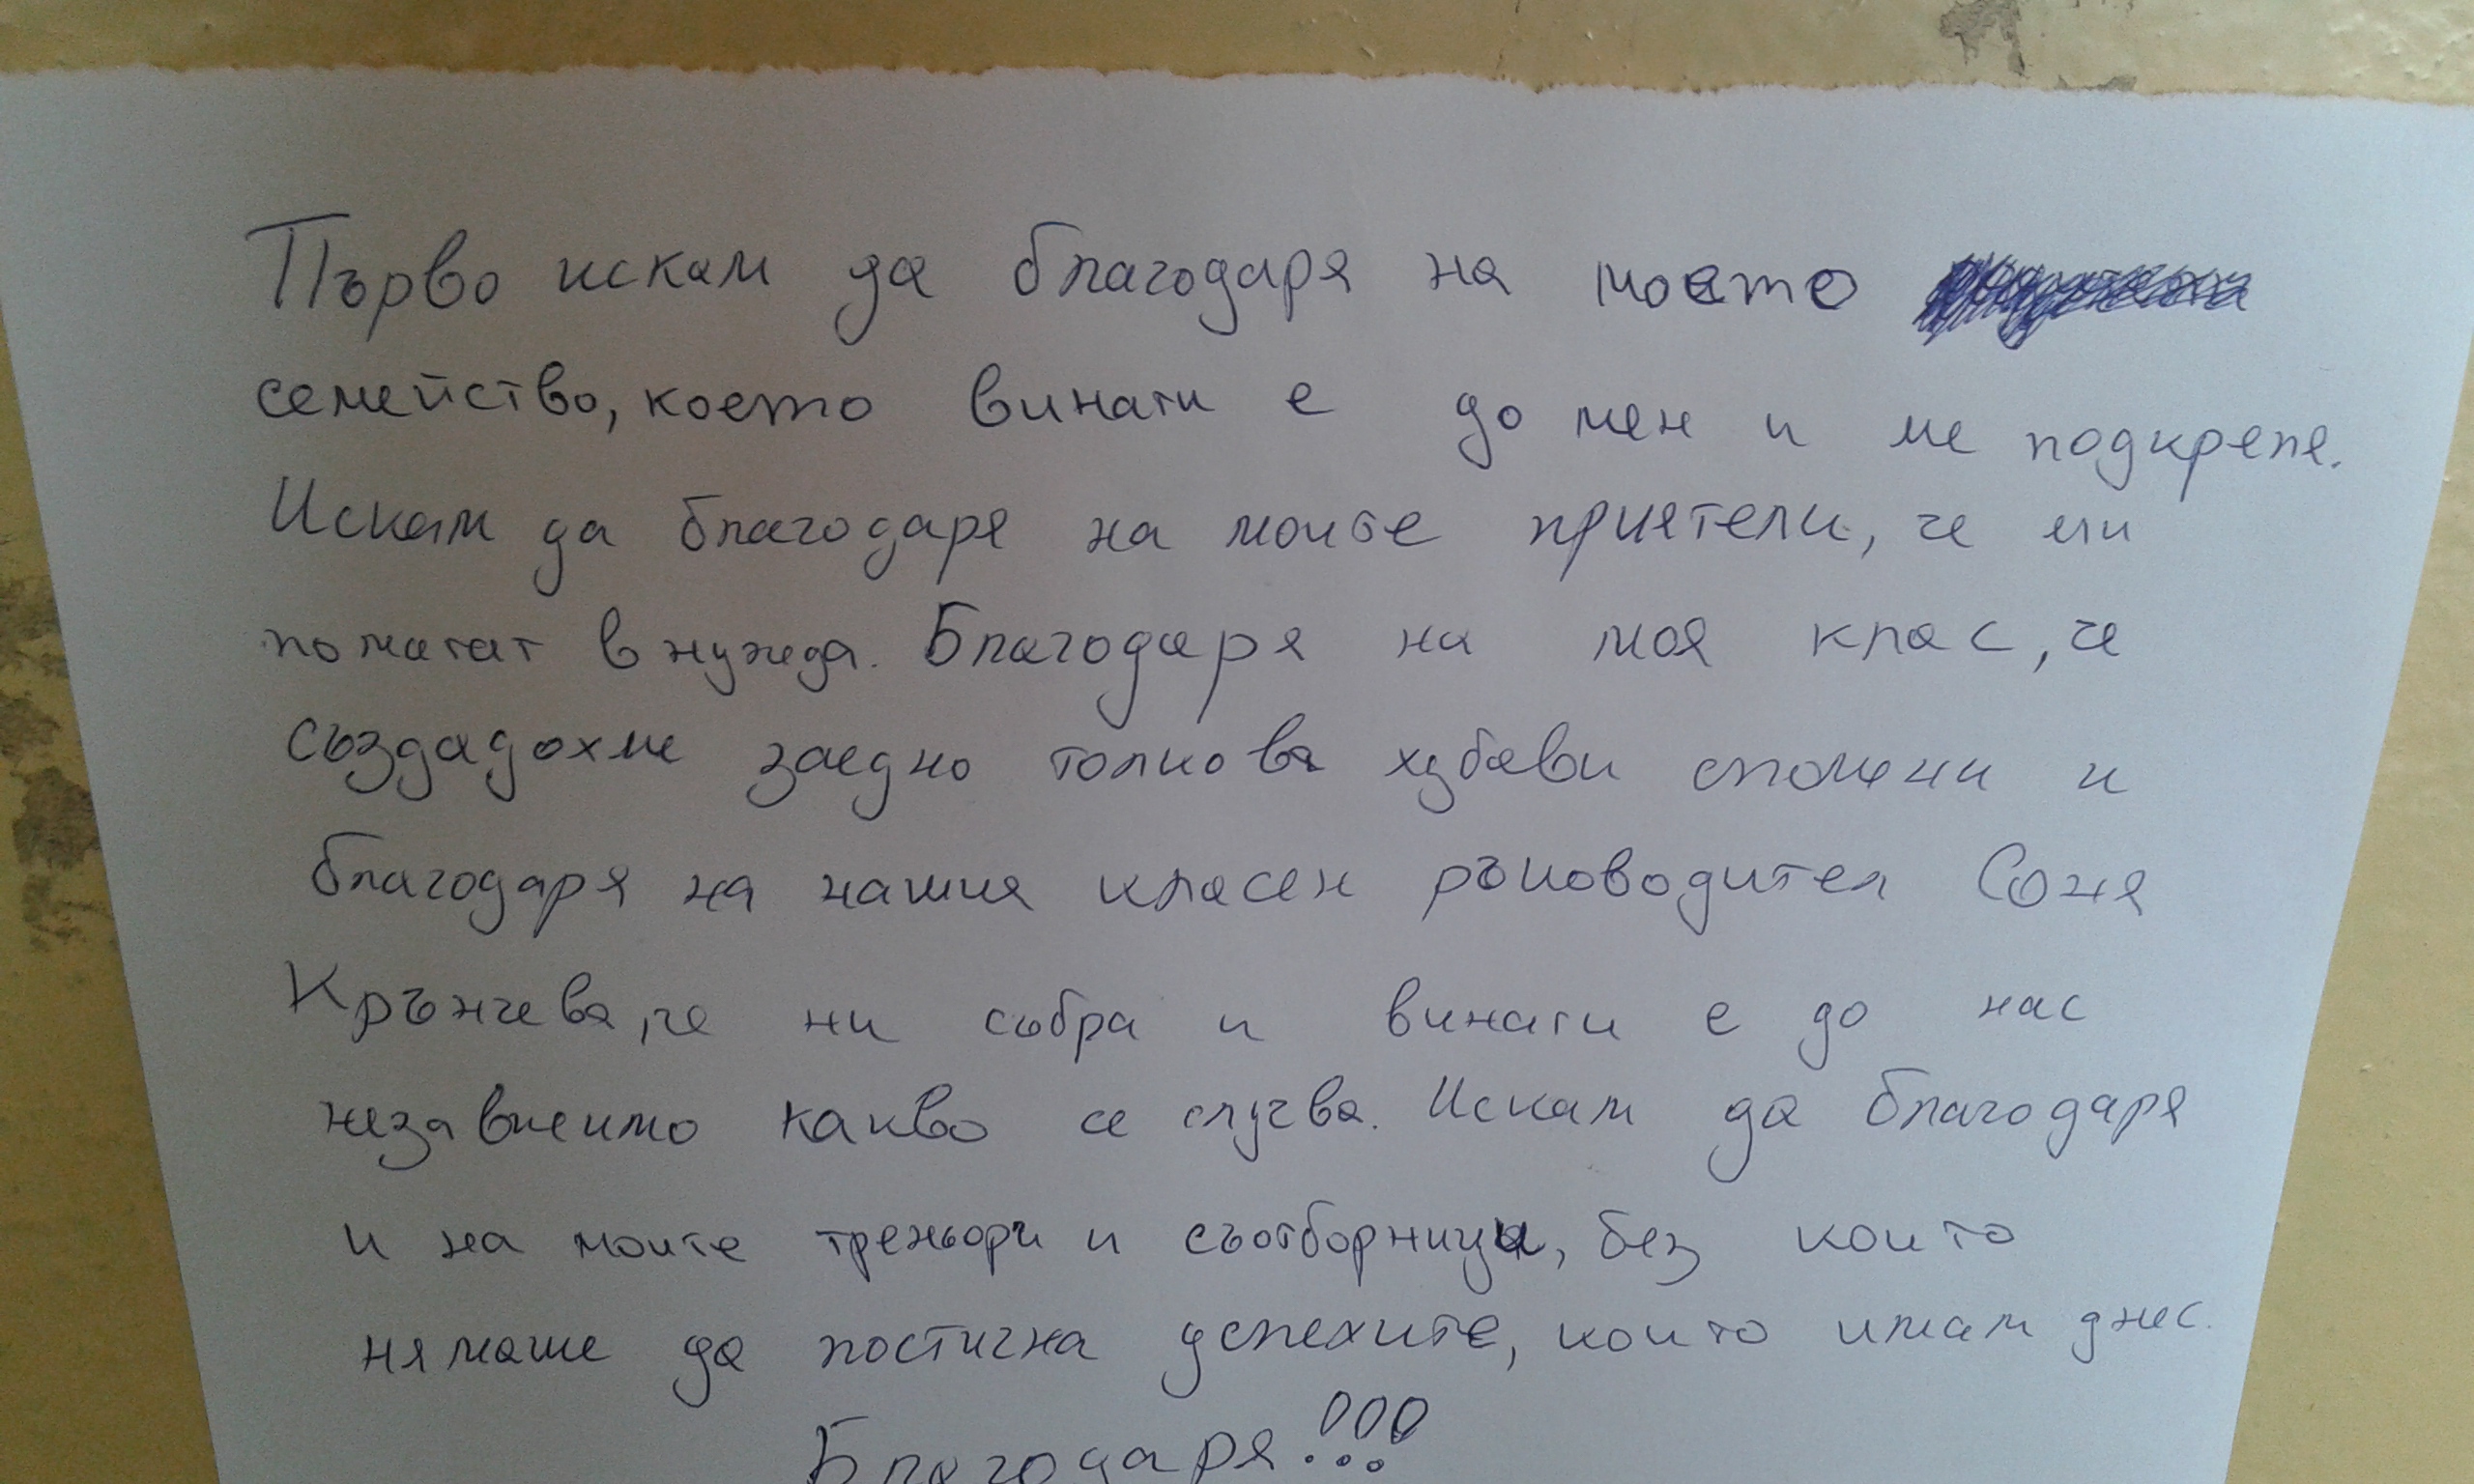 Първо искам да благодаря на моето
семейство, което винаги е до мен и ме подкрепя.
Искам да благодаря на моите приятели, че ми
помагат в нужда. Благодаря на моя клас, че
създадохме заедно толкова хубави спомени и
благодаря на нашия класен ръководител Соня
Крънчева, че ни събра и винаги е до нас
независимо какво се случва. Искам да благодаря
и на моите треньори и съотборници, без които
нямаше да постигна успехите, които имам днес.
Благодаря!!!